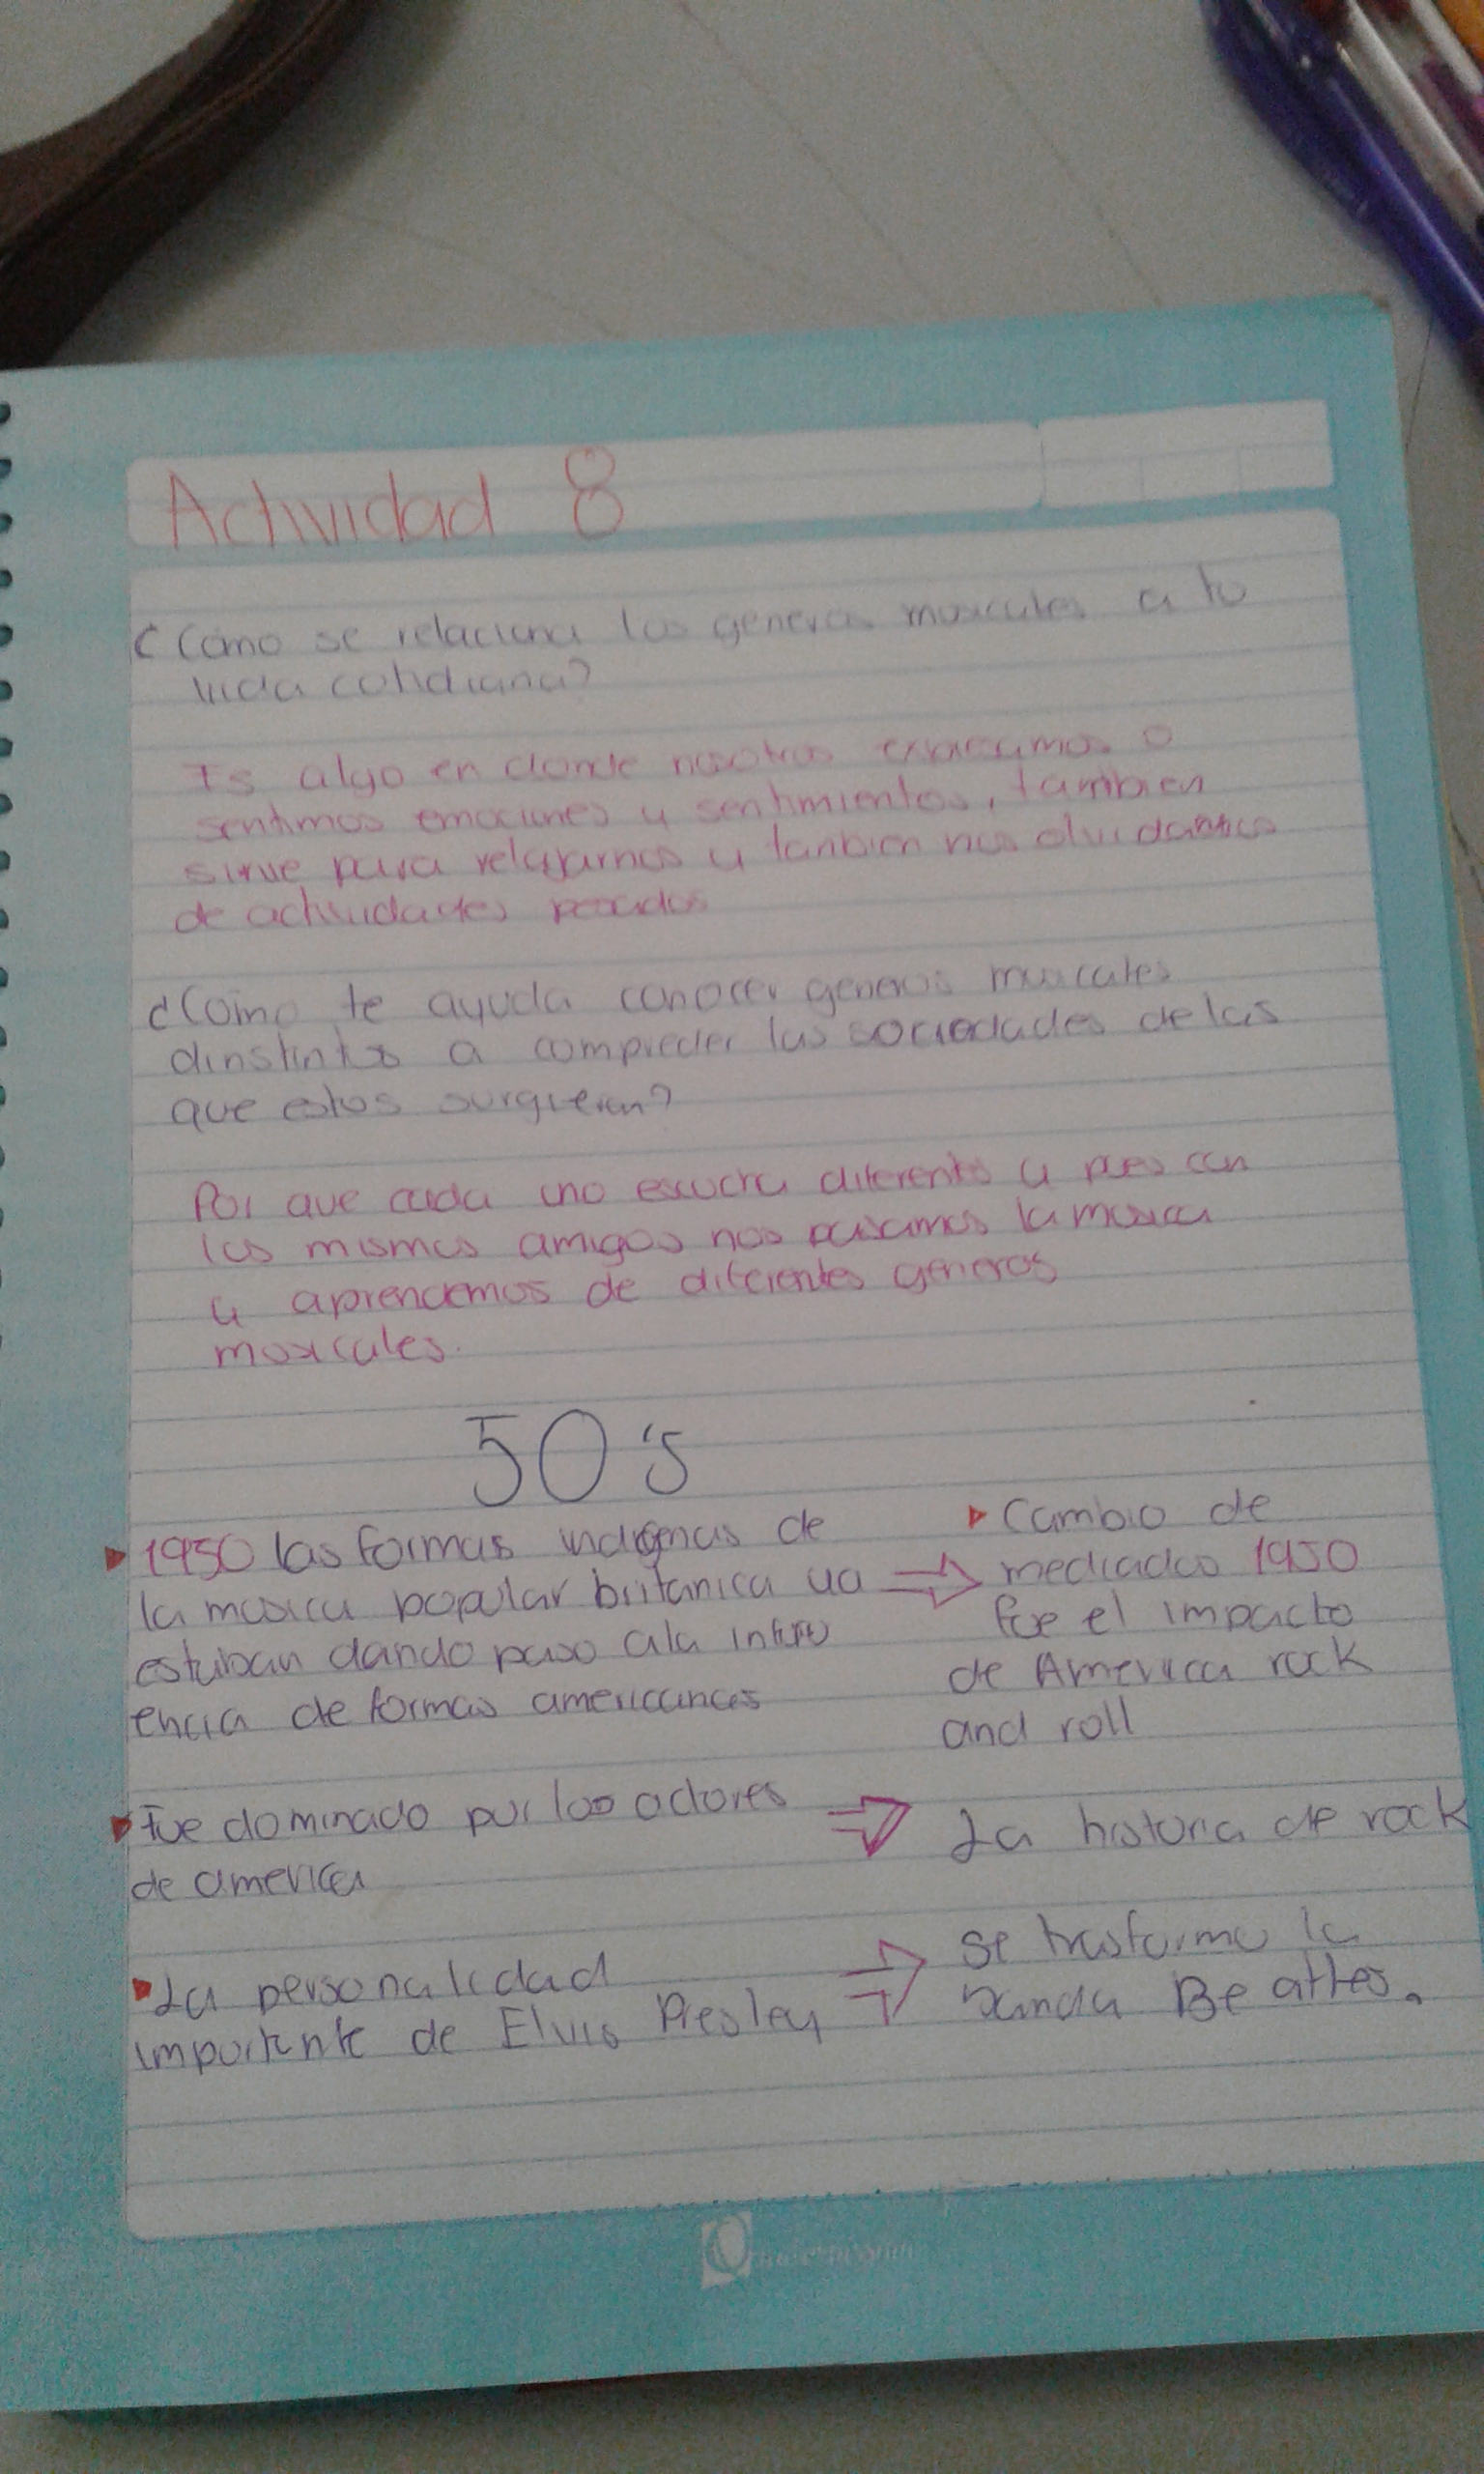 Actividad 8
¿Como se relaciona los generos musicales a tu
vida cotidiana?
Es algo en donde nosotros expresamos o
sentimos emociones y sentimientos, tambien
sirve para relajarnos y tanbien nos olvidamos
de actividades pesados
¿Como te ayuda conocer generos musicales
dinstintos a compreder las sociedades de las
que estos surgieron?
Por que cada uno escucha diferentes y pues con
los mismos amigos nos pasamos la musica
y aprendemos de diferentes generos
musicales.
50's
1950 las formas indigenas de
la musica popular britanica ya
estaban dando paso ala influ
encia de formas americanas
Cambio de
mediados 1950
fue el impacto
de America rock
and roll
Fue dominado por los actores
de america
La historia de rock
La personalidad
importante de Elvis Presley
se trasforma la
banda Be attles.